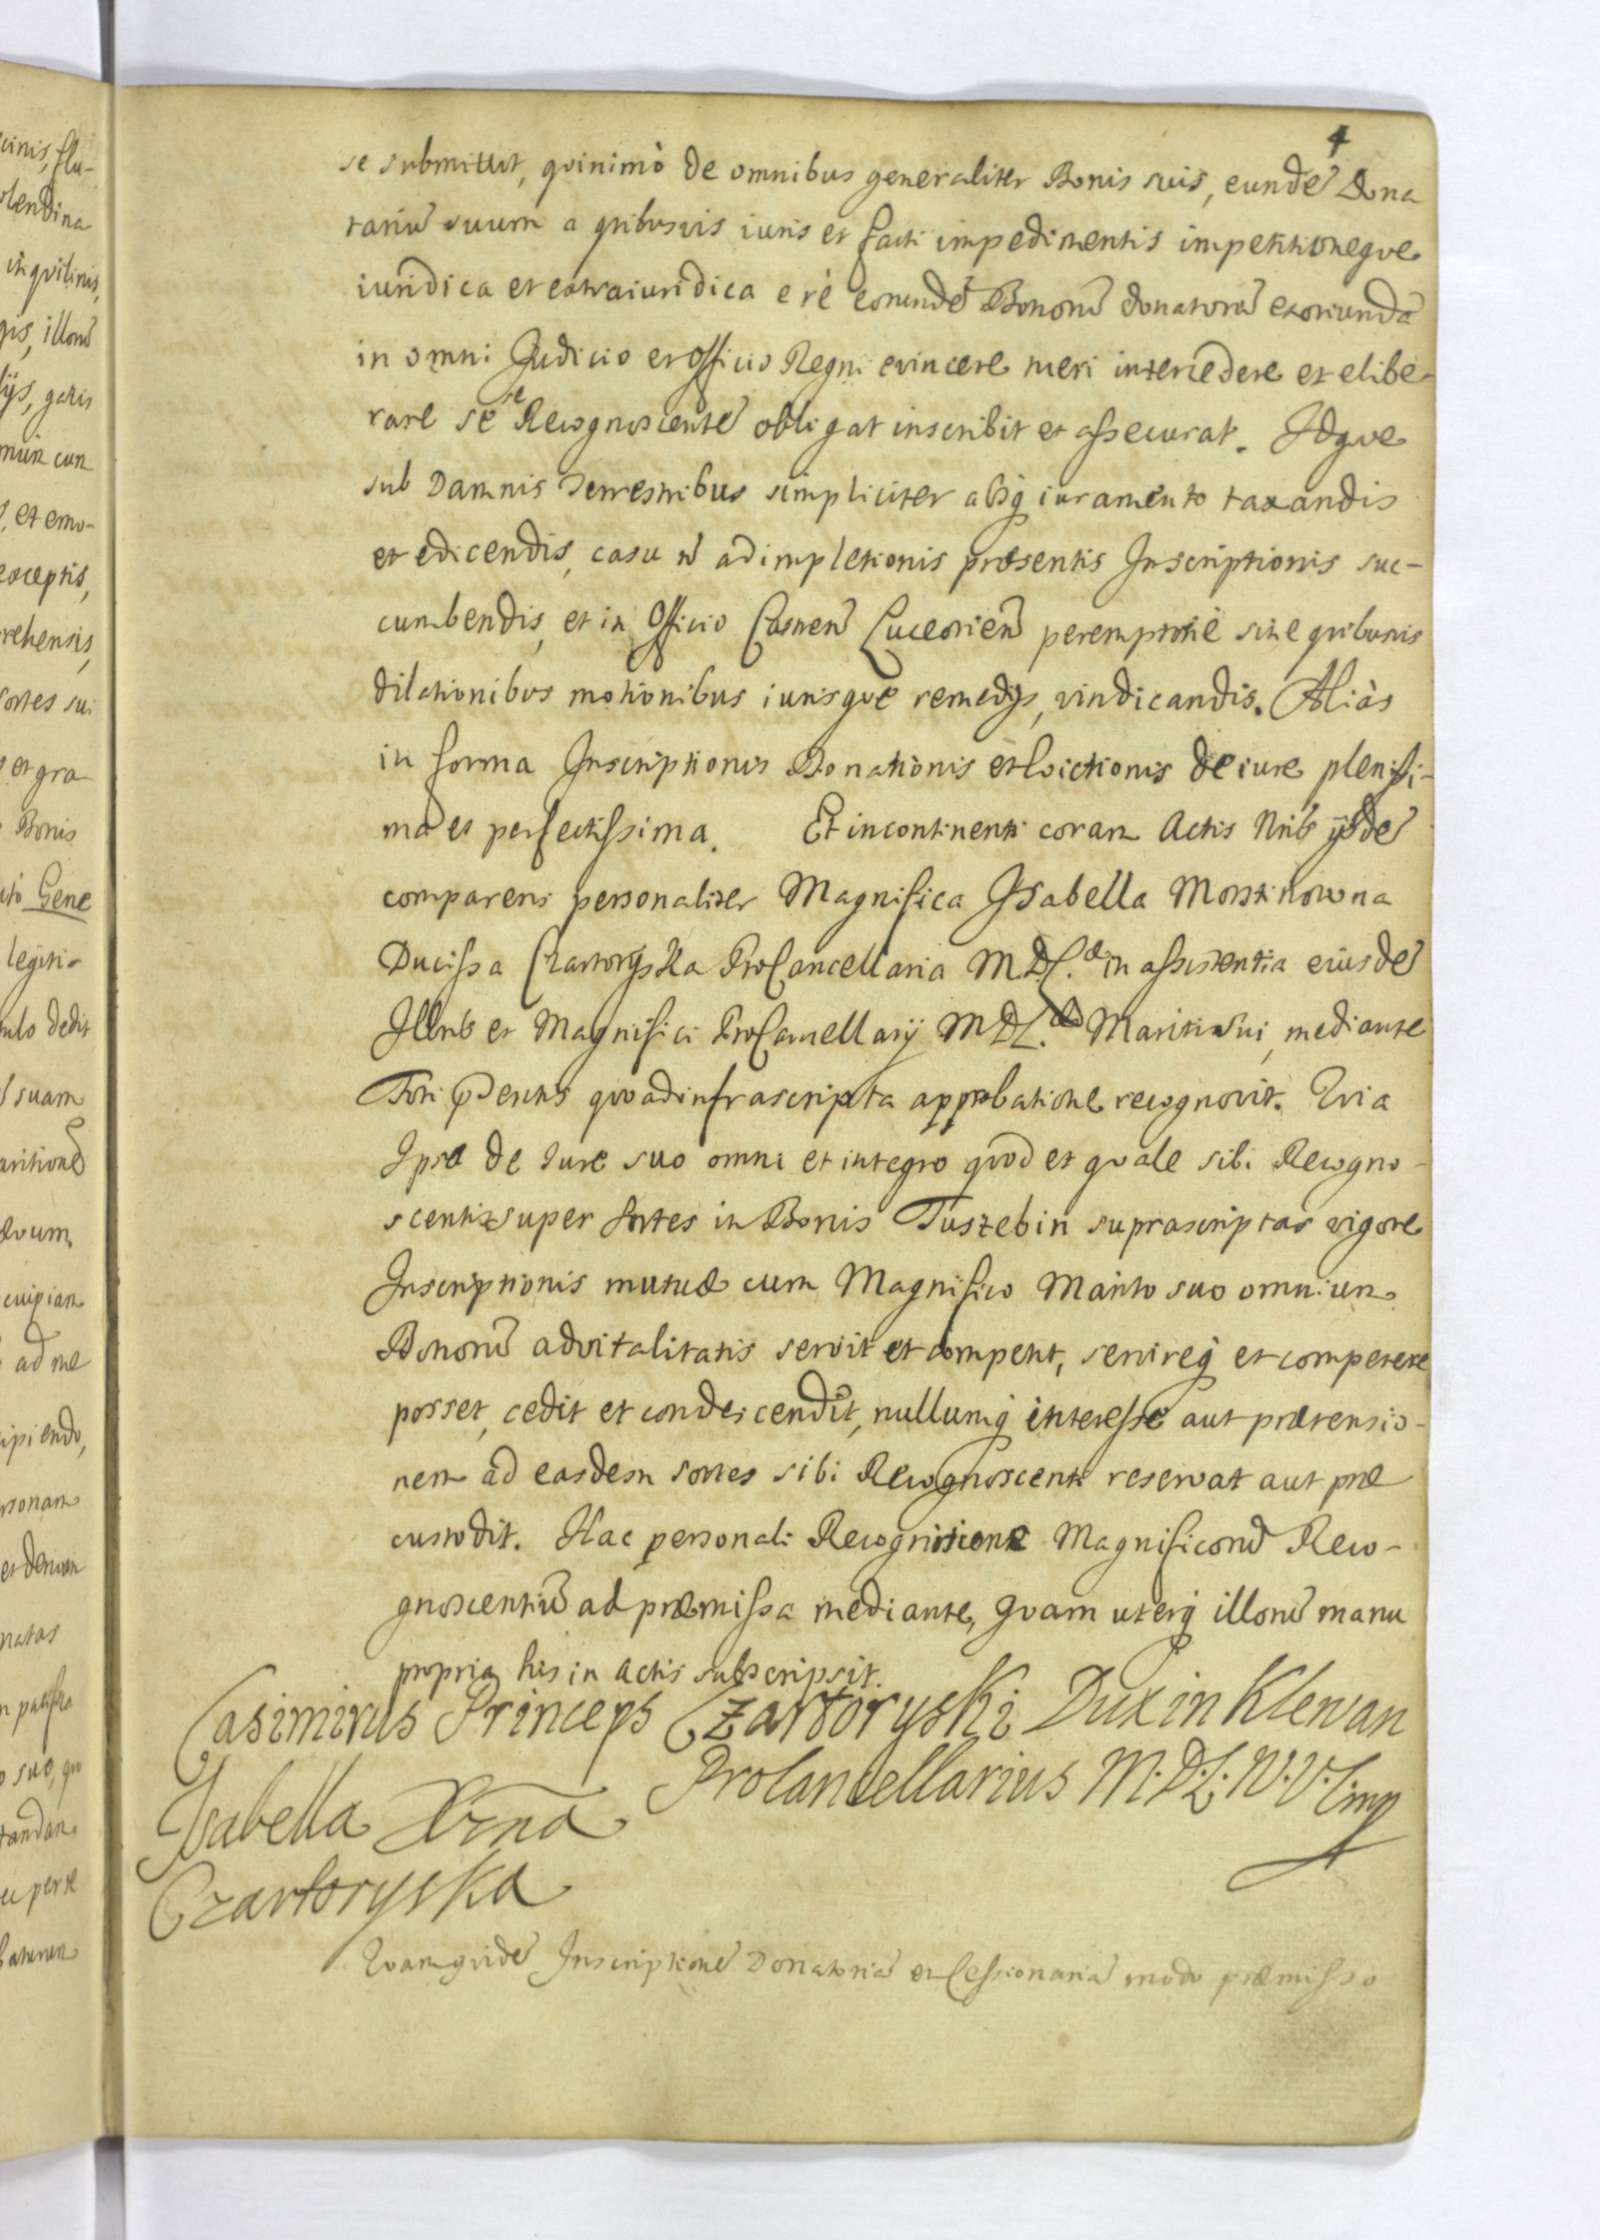 4
se submittit, quinimò de omnibus generaliter Bonis suis, eundẽ Dona
tariũ suum a quibusvis iuris et facti impedimentis impetitioneque
iuridica et extraiuridica e rè eorundẽ Bonorũ donatorũ exoriundã
in omni Judicio et Officio Regni evincere tueri intercedere et elibe-
rare se se Recognoscentẽ obligat inscribit et assecurat. Idque
sub Damnis Terrestribus simpliciter absq iuramento taxandis
et edicendis, casu ñ adimpletionis præsentis Inscriptionis suc-
cumbendis, et in Officio Castren̄ Luceorien̄ peremptoriè sine quibusvis
dilationibus motionibus iurisque remedijs, vindicandis. Aliàs
in forma Inscriptionis Donationis et Evictionis de iure plenissi-
ma et perfectissima. Et incontinenti coram Actis Nrib ijsdẽ
comparens personaliter Magnifica Isabella Morstinowna
Ducissa Czartoryska ProCancellaria M.D.L. in assistentia eiusdẽ
Illris et Magnifici ProCancellarij M.D.L. Mariti sui, mediante
Fori qdentis quoad infrascripta approbatione recognovit. Quia
Ipsa de Iure suo omni et integro quod et quale sibi Recogno-
scenti super sortes in Bonis Tustebin suprascriptas vigore
Inscriptionis mutuæ cum Magnifico Marito suo omnium
Bonorũ advitalitatis servit et competit, servireq et competere
posset, cedit et condescendit, nullumq interesse aut prætensio-
nem ad easdem sortes sibi Recognoscenti reservat aut præ
custodit. Hac personali Recognitione Magnificorũ Reco-
gnoscentiũ ad præmissa mediante, quam uterq illorũ manu
propria his in Actis subscripsit.
Casimirus Princeps Czartoryski Dux in Klewan
ProCancellarius M.D.L.
Isabella
Czartoryska
Quamquidẽ Inscriptionẽ Donatoriã et Cessionariã modo præmisso